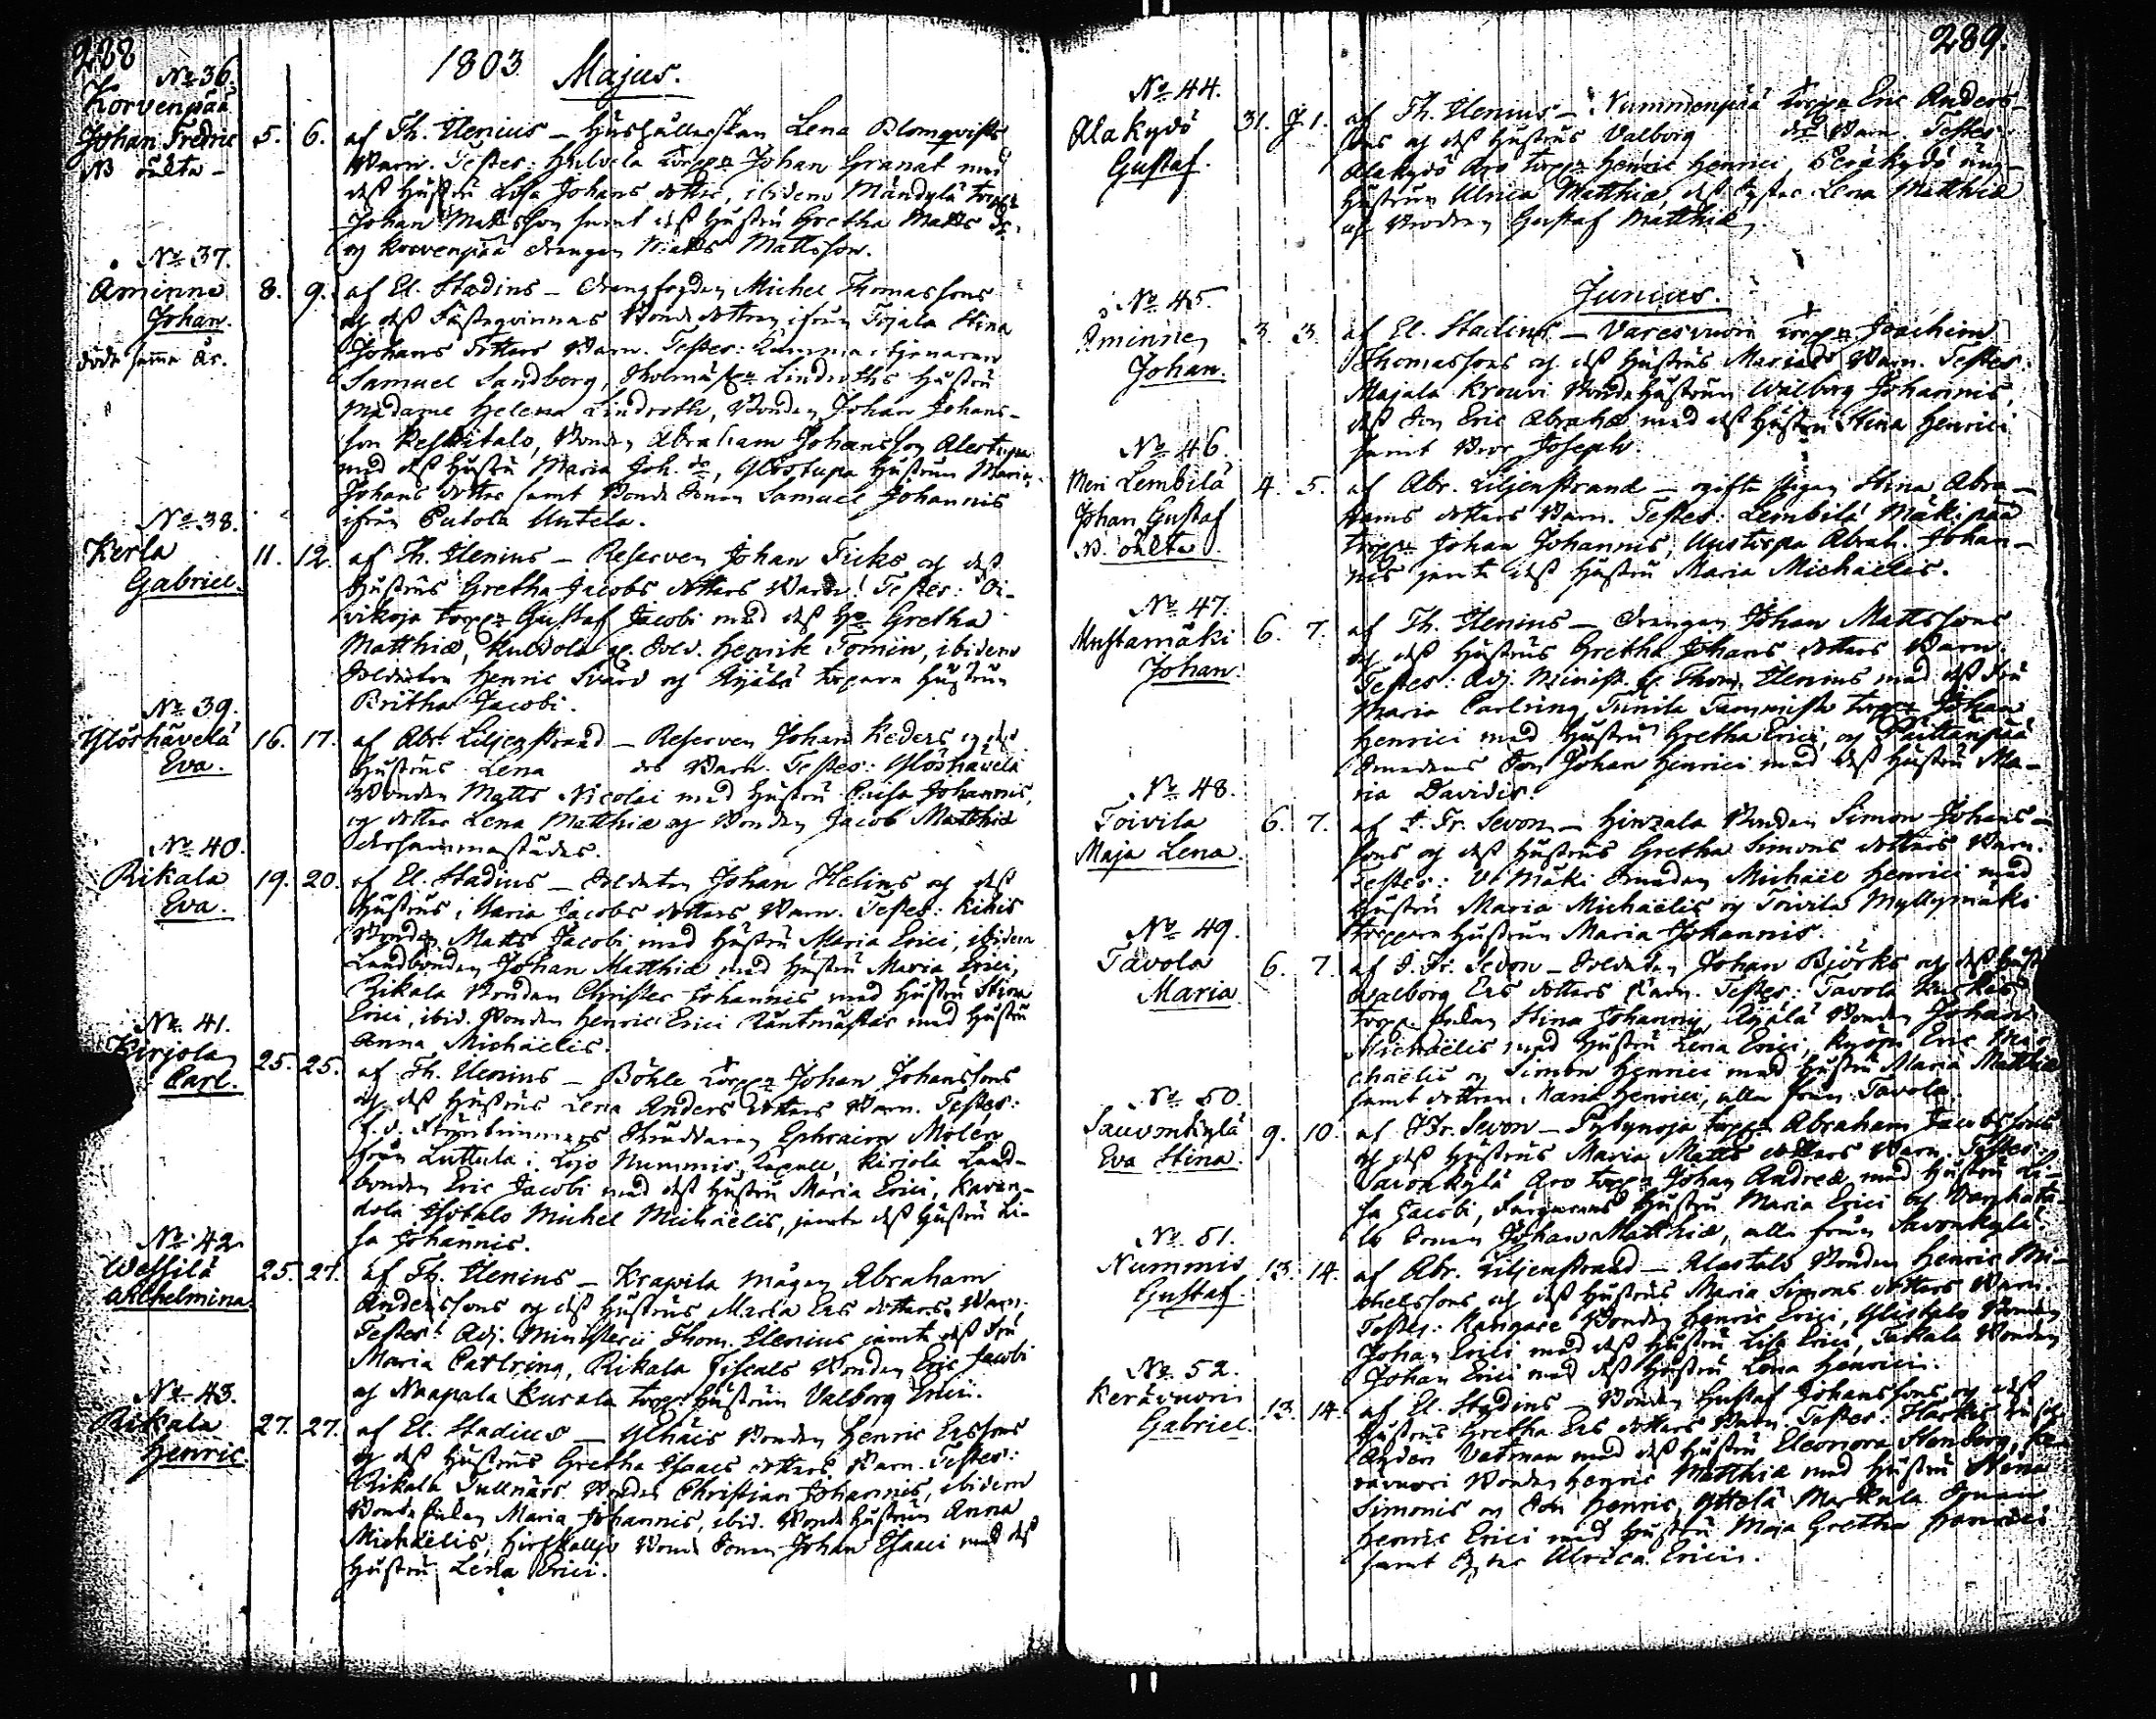 288
1803. Majus.
No 36.
Korvenpää
Johan Fredric
NB oälta
5. 6. af Th. Ilenius – Hushållerskan Lena Blomqvists
Barn. Testes: torp: Johan Granat med
dess Hustru Lisa Johans dotter, ibidem Mändylä torp:
Johan Mattsson samt dess Hustru Gretha Matts dr.
og Korvenpää drängen Matts Mattsson.
No 37.
Aminne
Johan.
döde samma år.
8. 9. af El. Stadius – drengfogden Michel Thomassons
og dess Fästeqvinnas Bonde dottren ifrån Tojala Stina
Johans dotters Barn. Testes: Kammartjenaren
Samuel Sandberg, Lindroths Hustru
Madame Helena Lindroth, Bonden Johan Johans-
son Keskitalo, Bonden Abraham Johansson Alestupa
med dess Hustru Maria Joh. dr, Ylöstupa Hustrun Maria
Johans dotter samt Bonde Sonen Samuel Johannis
ifrån Untela.
No 38.
Kerla
Gabriel.
11. 12. af Th. Ilenius – Reserven Johan Ficks og dess
Hustrus Gretha Jacobs dotters Barn. Testes: Oi-
vikoja torp: Gustaf Jacobi med dess H: Gretha
Matthiæ, Kuldola Sold. Henrik Tomin, ibidem
Soldaten Henric Svärd og Äijälä torpare Hustrun
Britha Jacobi.
No 39.
Ylöshävelä
Eva.
16. 17. af Abr. Liljenstrand – Reserven Johan Keders og dess
Hustrus Lena drs Barn. Testes: Ylöshävelä
Bonden Matts Nicolai med Hustru Caisa Johannis,
og dotter Lena Matthiæ og Bonden Jacob Matthiæ
dersammastädes.
No 40.
Rikala
Eva.
19. 20. af El. Stadius – Soldaten Johan Helins og dess
Hustrus Maria Jacobs dotters Barn. Testes: Kikis
Bonden Matts Jacobi med Hustru Maria Erici, ibidem
Landbonden Johan Matthiæ med Hustru Maria Erici,
Rikala Bonden Christer Johannis med Hustru Stina
Erici, ibid. Bonden Henric Erici Räntmästar med Hustru
Anna Michaëlis.
No 41.
Kirjola
Carl.
25. 25. af Th. Ilenius – Böhle torp: Johan Johanssons
og dess Hustrus Lena Anders dotters Barn. Testes:
f.d. Skräddaren Ephraim Molén
från Luttula i Lojo Nummis Capell, Kirjola Land-
bonden Eric Jacobi med dess Hustru Maria Erici,
Michel Michaëlis, jemte dess Hustru Li-
sa Johannis.
No 42.
Wessilä
Wilhelmina.
25. 27. af Th. Ilenius – Krapila mågen Abraham
Anderssons og dess Hustrus Maria Ers dotters Barn.
Testes: Adj. Ministerii Thom. Ilenius jämte dess Fru
Maria Carlring, Rikala Fiscals Bonden Eric Jacobi
og Naapala Kurala torp: Hustrun Valborg Erici.
No 43.
Rikala
Henric.
27. 27. af El. Stadius – Ylhäis Bonden Henric Erssons
og dess Hustrus Gretha Isaacs dotters Barn. Testes:
Rikala Tullnärs Bonden Christian Johannis, ibidem
Bonde Enkan Maria Johannis, ibid. Bonde Hustrun Anna
Michaëlis, Hirskallio Bonde Sonen Johan Isaaci med dess
Hustru Lena Erici.
289.
No 44.
Alakydö
Gustaf.
31. J1. af Th. Ilenius – Nummenpää torp: Eric Anders-
sons og dess Hustrus Valborg drs Barn. Testes:
Alakydö Aro torp: Henric Henrici Peräkydö
Hustrun Ulrica Matthiæ, dess Syster Lena Matthiæ
og Brodren Gustaf Matthiæ.
Junius.
No 45.
Aminne
Johan.
3. 3. af El. Stadius – Varesvuori torp: Joachim
Thomassons og dess Hustrus Marias Barn. Testes:
Majala Krouvi Bonde Hustrun Walborg Johannis,
dess Son Eric Abrahæ med dess Hustru Stina Henrici
samt Bror Joseph.
No 46.
Meri Lembilä
Johan Gustaf
NB. oälta.
4. 5. af Abr. Liljenstrand – ogifta Pigan Stina Abra-
hams dotters Barn. Testes: Lembilä Mäkipää
torp: Johan Johannis, Uustupa Abrah. Johan-
nis jemte dess Hustru Maria Michaëlis.
No 47.
Mustamäki
Johan.
6. 7. af Th. Ilenius – drengen Johan Mattssons
og dess Hustrus Gretha Johans dotters Barn.
Testes: Adj. Minist. Thom. Ilenius med dess Fru
Maria Carlring, torp: Johan
Henrici med Hustru Gretha Erici, og
Smedens Son Johan Henrici med dess Hustru Ma-
ria Davidis.
No 48.
Toivila
Maja Lena.
6. 7. af J. Fr. Sevon – Hinzala Bonden Simon Johans-
sons og dess Hustrus Gretha Simons dotters Barn.
Testes: Smeden Michaël Henrici med
Hustru Maria Michaëlis og Toivila Myllymäki
torpare Hustrun Maria Johannis.
No 49.
Tavola
Maria.
6. 7. af J. Fr. Sevon – Soldaten Johan Björks og dess Hustr.
Walborg Ers dotters Barn. Testes: Tavola
torp: Enkan Stina Johannis, Äijälä Bonden Johan
Michaëlis med Hustru Lena Erici, Eric Mi-
chaëlis og Simon Henrici med Hustru Maria Matthiæ
samt dottren Maria Henrici, alla från Tavola.
No 50.
Sauvonkylä
Eva Stina.
9. 10. af J.Fr. Sevon – Pytynoja torp: Abraham Jacobssons
og dess Hustrus Maria Matts dotters Barn. Testes:
Savonkylä Aro torp: Johan Andreæ med Hustru Li-
sa Jacobi, Hustru Maria Erici og
Sonen Johan Matthiæ, alla från Savonkylä.
No 51.
Nummis
Gustaf.
13. 14. af Abr. Liljenstrand – Alastalo Bonden Henric Mi-
chelssons og dess Hustrus Maria Simons dotters Barn.
Testes: Kangare Bonden Henric Erici, Ylistalo Bonden
Johan Erici med dess Hustru Lisa Erici, Takala Bonden
Johan Erici med dess Hustru Lena Henrici.
No 52.
Kerävuori
Gabriel.
13. 14. af El. Stadius – Bonden Gustaf Johanssons og dess
Hustrus Gretha Ers dotters Barn. Testes:
Vatman med dess Hustru Eleonora Stenberg, Ke-
rävuori Bonden Henric Matthiæ med Hustru Stina
Simonis og Son Henric, Yttelä Markula Sonen
Henric Erici med Hustru Maja Gretha Henrici
samt Syster Ulrica Erici.